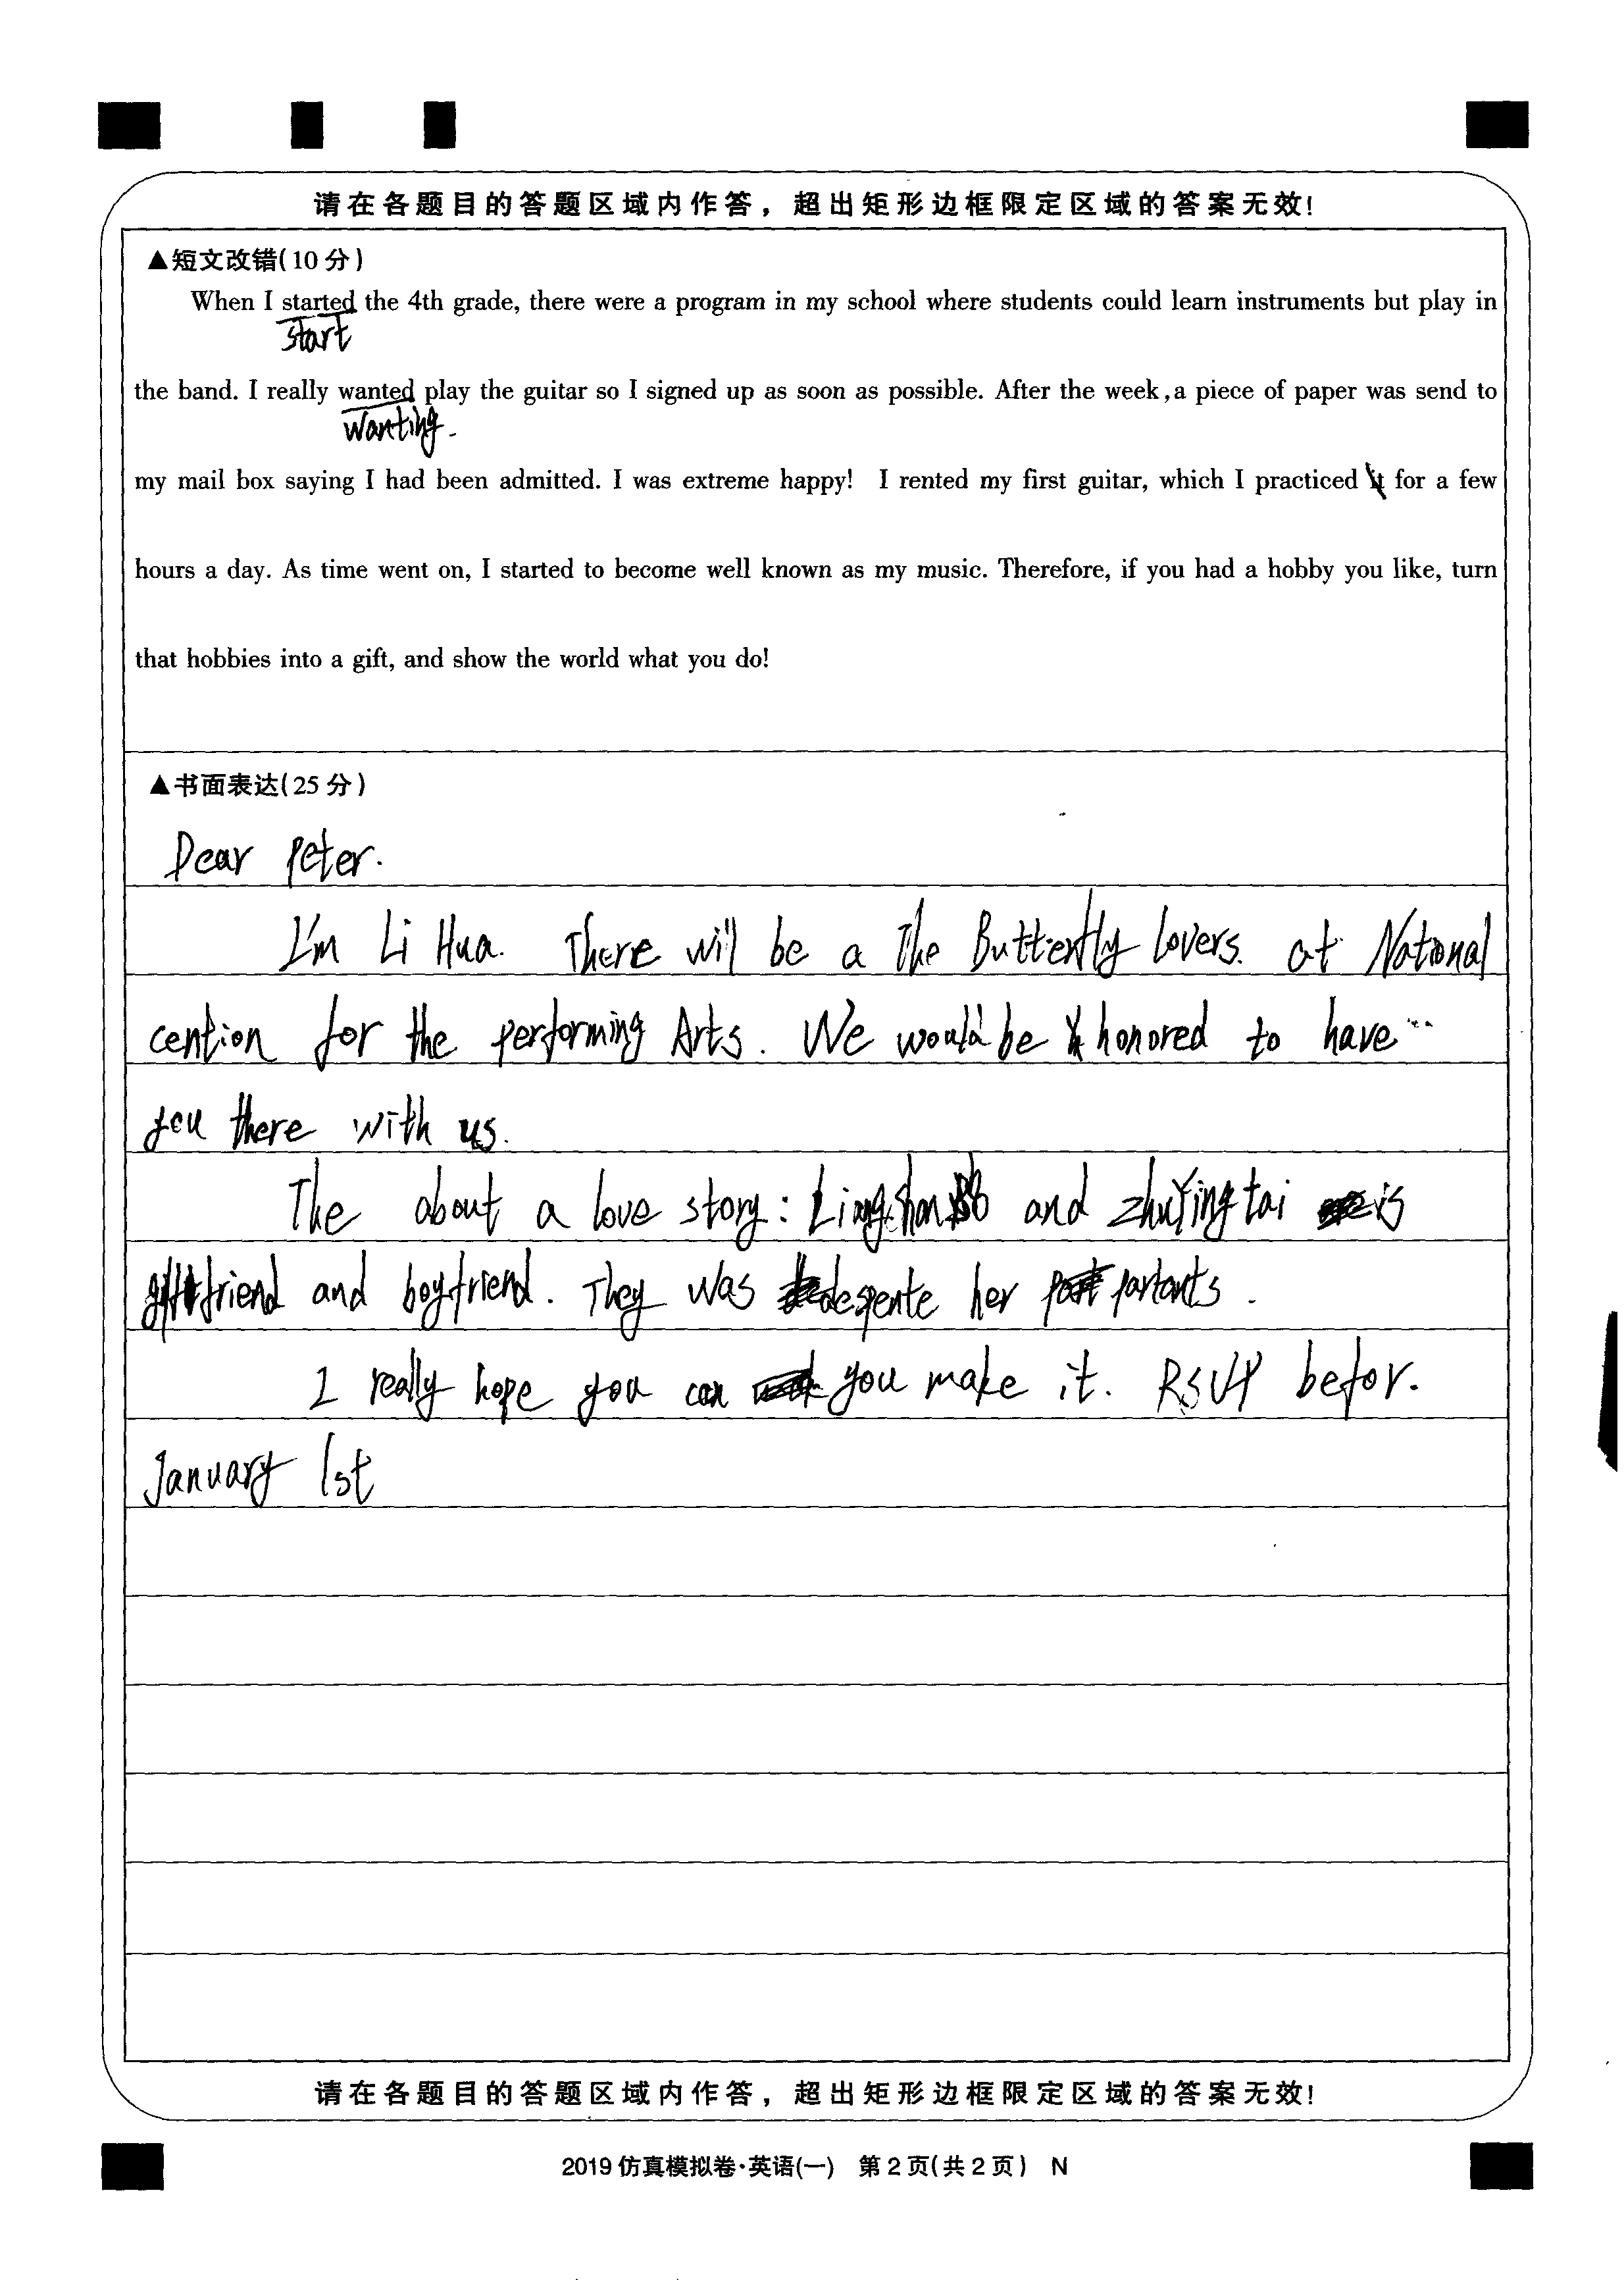 请在各题目的答题区域内作答，超出矩形边框限定区域的答案无效！
▲短文改错(10分)
When I started the 4th grade, there were a program in my school where students could learn instruments but play in
start
the band. I really wanted play the guitar so I signed up as soon as possible. After the week,a piece of paper was send to
wanting.
my mail box saying I had been admitted. I was extreme happy! I rented my first guitar, which I practiced it for a few
hours a day. As time went on, I started to become well known as my music. Therefore, if you had a hobby you like, turn
that hobbies into a gift, and show the world what you do!
▲书面表达(25分)
Dear Peter.
I'm Li Hua. There will be a The Butterfly lovers. at National
cention for the performing Arts. We would be honored to have
you there with us.
The about a love story: and zhuYingtai is
friend and boyfriend. They was despente her partants.
I really hope you can you make it. RSVP befor.
January 1st
请在各题目的答题区域内作答，超出矩形边框限定区域的答案无效！
2019仿真模拟卷·英语(一) 第2页(共2页) N